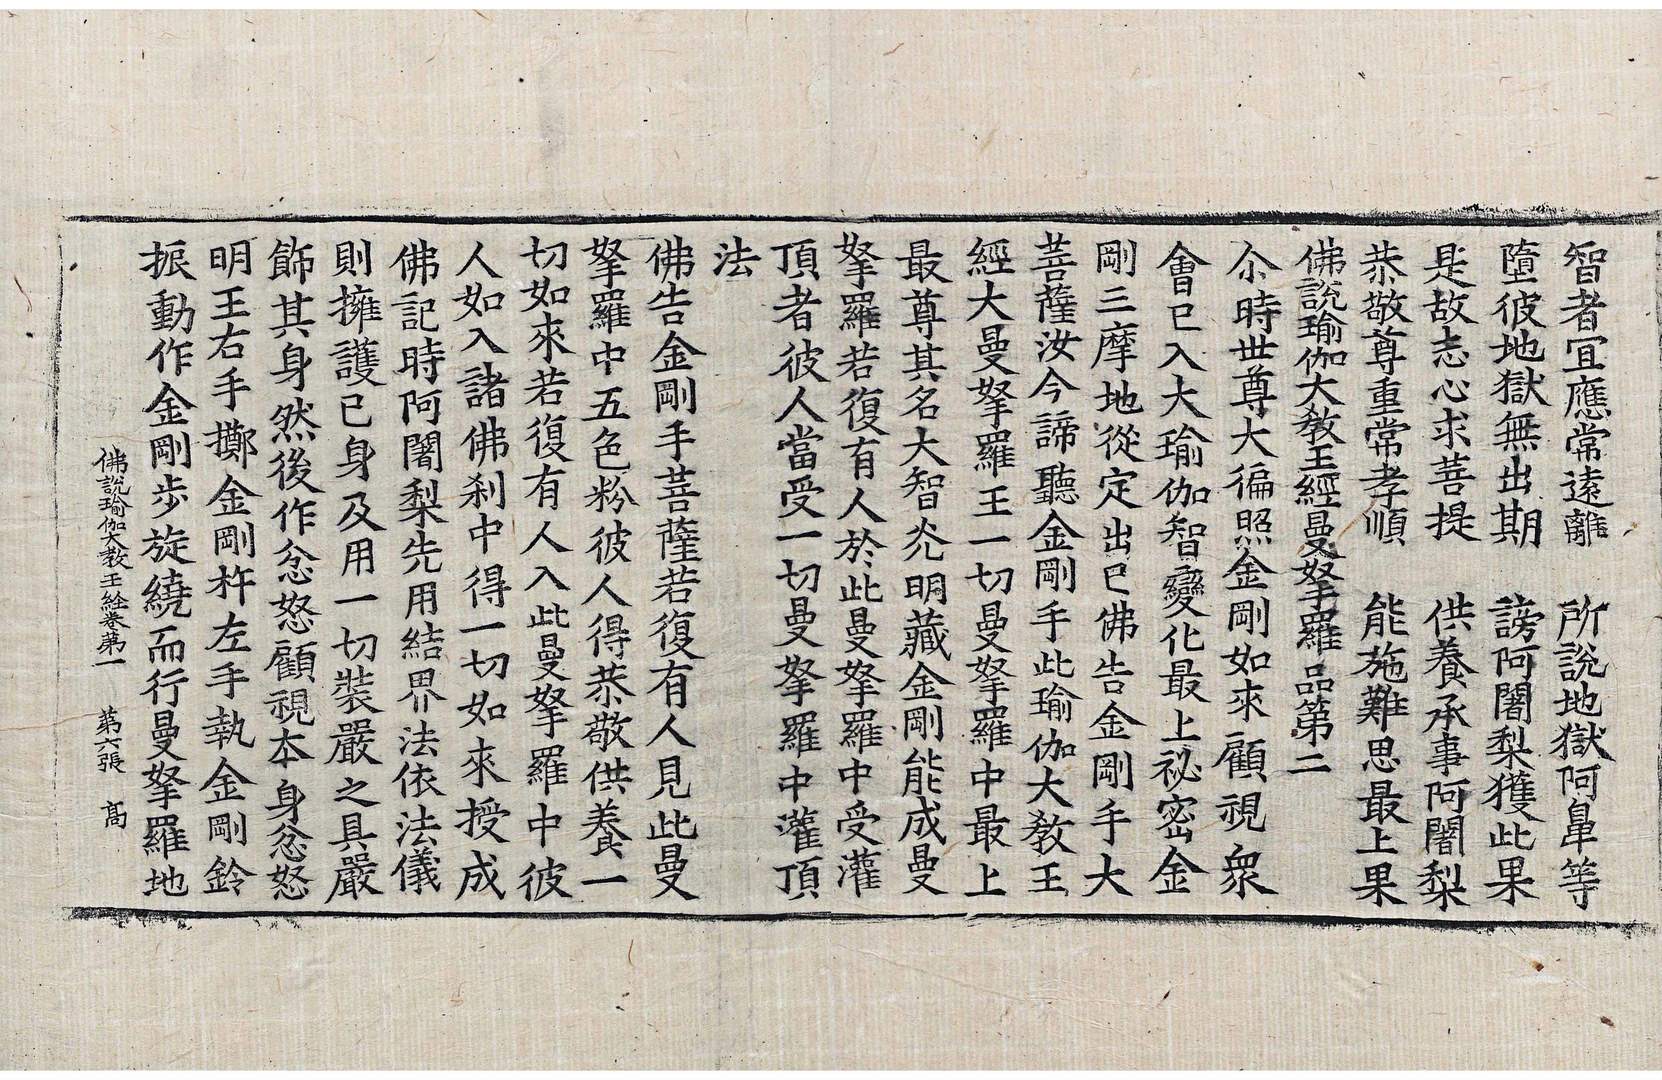 智者宜應常遠離　所說地獄阿鼻等
墮彼地獄無出期　謗阿闍梨獲此果
是故志心求菩提　供養承事阿闍梨
恭敬尊重常孝順　能施難思最上果
佛說瑜伽大教王經曼拏羅品第二
尒時世尊大徧照金剛如來顧視衆
會已入大瑜伽智變化最上祕密金
剛三摩地從定出已佛告金剛手大
菩薩汝今諦聽金剛手此瑜伽大教王
經大曼拏羅王一切曼拏羅中最上
最尊其名大智炎明藏金剛能成曼
拏羅若復有人於此曼拏羅中受灌
頂者彼人當受一切曼拏羅中灌頂
法
佛告金剛手菩薩若復有人見此曼
拏羅中五色粉彼人得恭敬供養一
切如來若復有人入此曼拏羅中彼
人如入諸佛刹中得一切如來授成
佛記時阿闍梨先用結界法依法儀
則擁護已身及用一切裝嚴之具嚴
飾其身然後作忿怒顧視本身忿怒
明王右手擲金剛杵左手執金剛鈴
振動作金剛步旋繞而行曼拏羅地
佛說瑜伽大教王経卷苐一　苐六張　髙